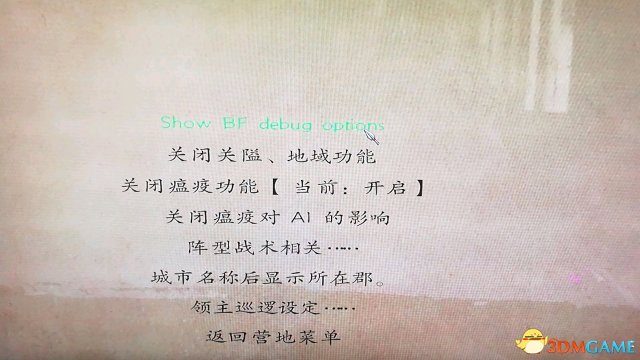 Show BF debug options
关闭关隘、地域功能
关闭瘟疫功能【当前：开启】
关闭瘟疫对 AI 的影响
阵型战术相关……
城市名称后显示所在郡。
领主巡逻设定……
返回营地菜单
3DMGAME